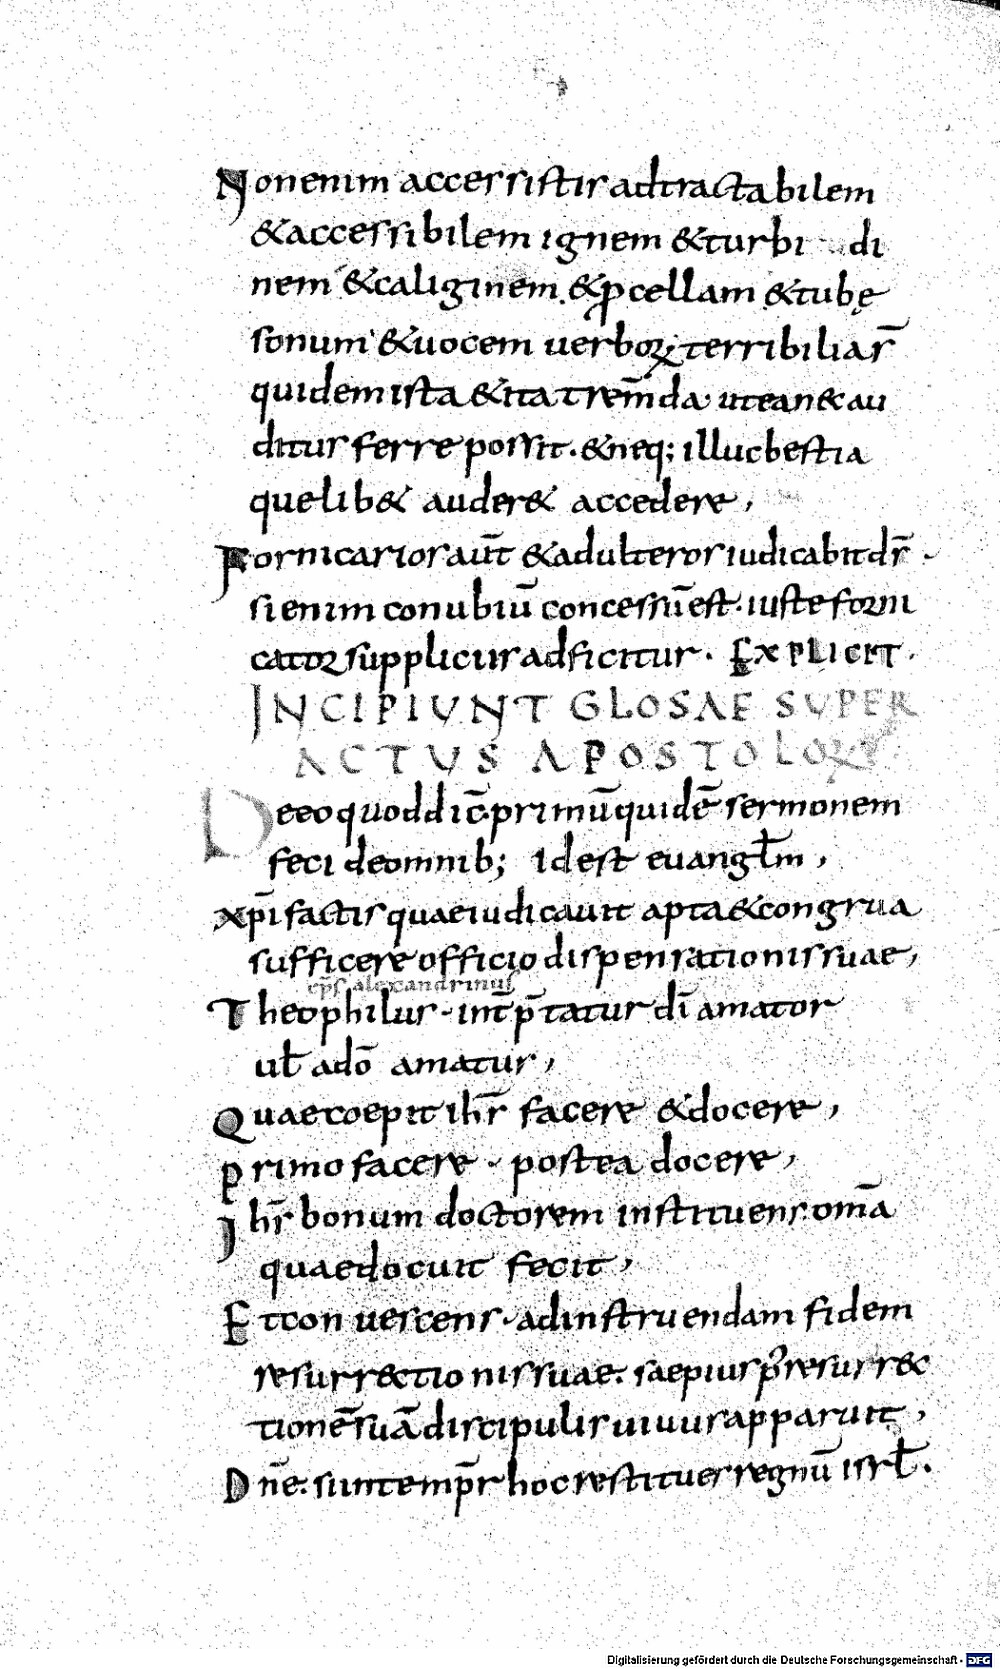 Non enim accessistis ad tractabilem
& accessibilem ignem & turbi di
nem & caliginem & ꝓcellam & tubę
sonum & uocem uerboꝝ terribilia s̄
quidem ista & ita trem̄da ut ea n& au
ditus ferre possit . & neq; illuc bestia
quelib& auder& accedere ,
Fornicarios aūt & adulteros iudicabit ds̄ .
si enim conubiū concessū est . iuste forni
catoꝝ suppliciis adficitur . EXPLICIT .
INCIPIUNT GLOSAE SUPER
ACTUS APOSTOLOꝜ
De eo quod dic̄ primū quidē sermonem
feci de omnib; idest euangl̄m ,
xp̄i factis quae iudicauit apta & congrua
sufficere officio dispensationis suae ,
ep̄s alexandrinus
Theophilus . int̄p̄tatur dī amator
ul̄ a dō amatur ,
Quae coepit ih̄s facere & docere ,
Primo facere . postea docere ,
Ih̄s bonum doctorem instituens om̄a
quae docuit fecit ,
Et conuescens . ad instruendam fidem
resurrectionis suae . saepius p̄ resurrec
tionē suā discipulis uiuus apparuit ,
Dn̄e . si in temp̄r hoc restitues regnū isrl̄ .
Digitalisierung gefördert durch die Deutsche Forschungsgemeinschaft - DFG